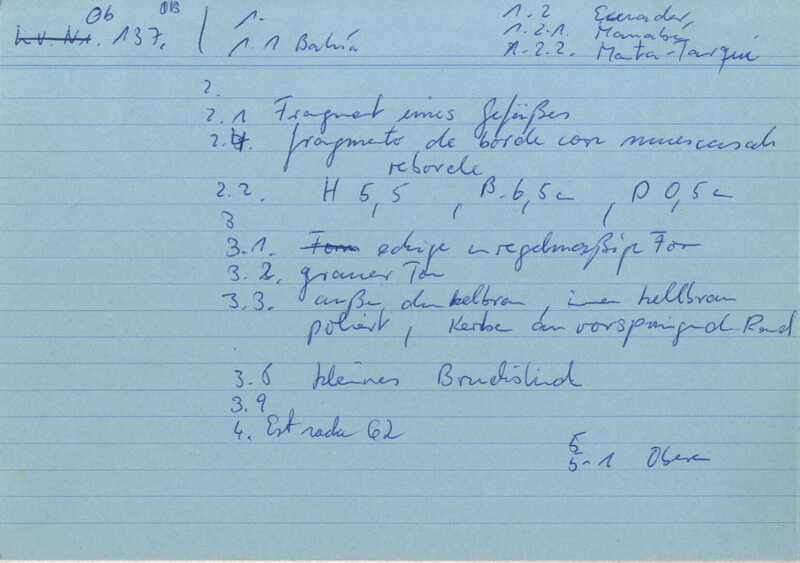 Ob OB
Lv. Nr. 137.
1.
1.1 Bahía
1.2 Ecuador,
1.2.1. Manabí,
1.2.2. Manta-Tarqui
2.
2.1 Fragmet eines Gefäßes
2.4. fragmento de borde con muescas al
reborde
2.2. H 5,5 , B. 6,5 c , D 0,5 c
3
3.1. Form eckige unregelmäßige For
3.2. grauer Ton
3.3. auße dunkelbran, innen hellbran
poliert, Kerbe an vorspringend Rand
3.6 kleines Bruchstück
3.9
4. Estrada 62
5
5-1 Oberem